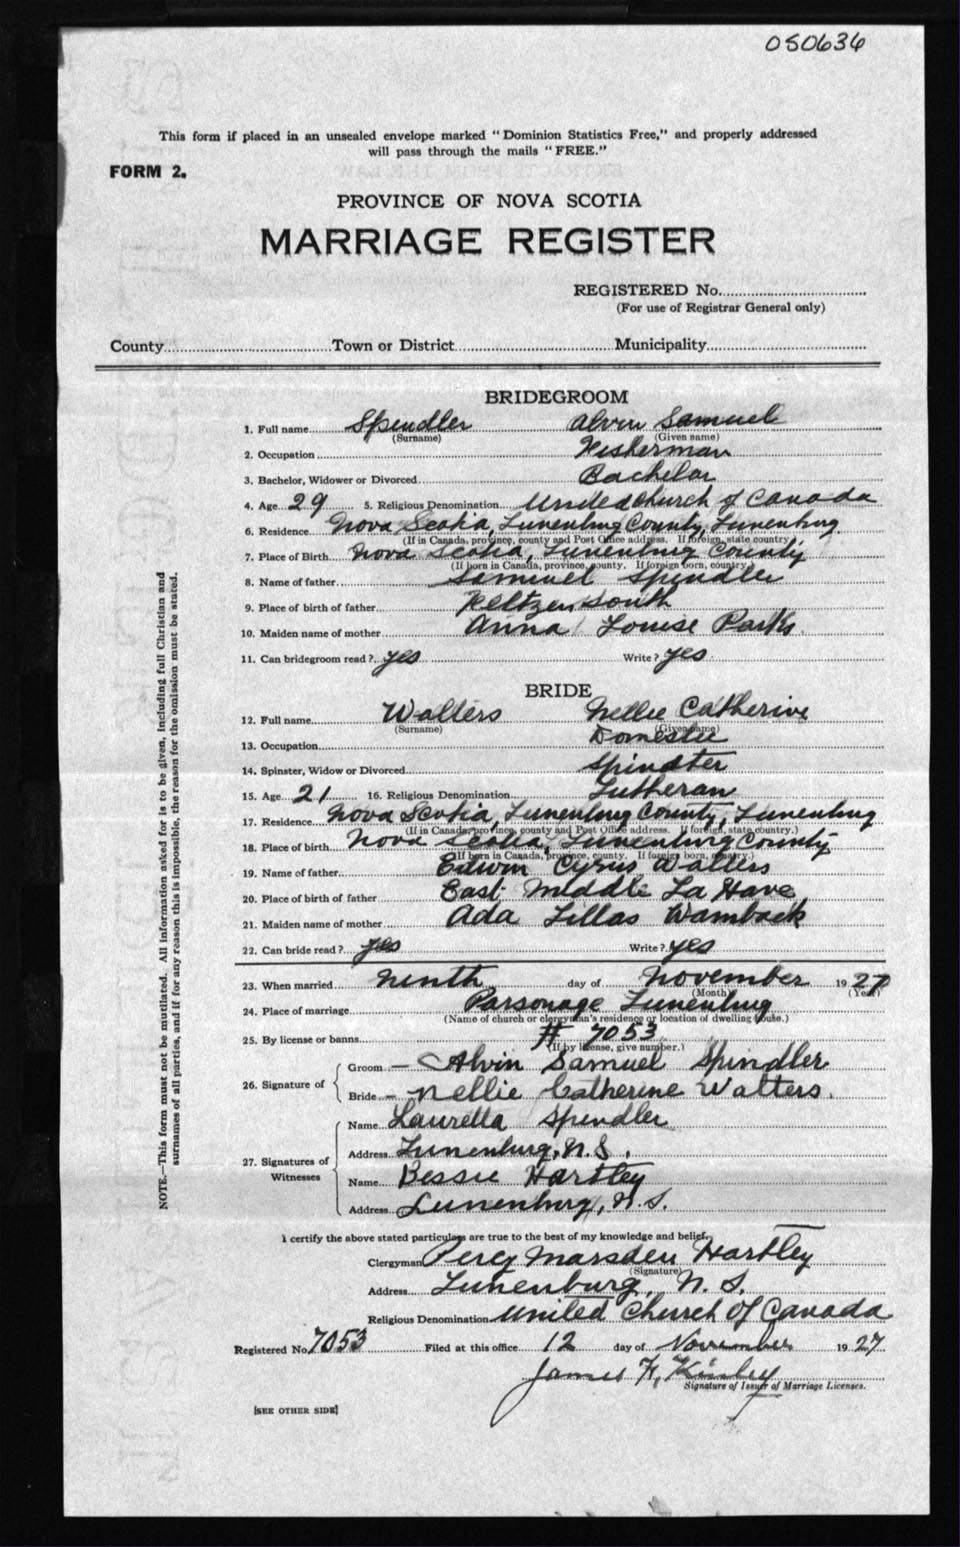 050636
This form if placed in an unsealed envelope marked "Dominion Statistics Free," and properly addressed
will pass through the mails "FREE."
FORM 2.
PROVINCE OF NOVA SCOTIA
MARRIAGE REGISTER
REGISTERED No.
(For use of Registrar General only)
County Town or District Municipality
BRIDEGROOM
1. Full name Spindler Alvin Samuel
(Surname) (Given name)
2. Occupation Fisherman
3. Bachelor, Widower or Divorced Bachelor
4. Age 29 5. Religious Denomination United Church of Canada
6. Residence Nova Scotia, Lunenburg County, Lunenburg
(If in Canada, province, county and Post Office address. If foreign, state country.)
7. Place of Birth Nova Scotia, Lunenburg County
(If born in Canada, province, county. If foreign born, country.)
8. Name of father Samuel Spindler
9. Place of birth of father Feltzen South
10. Maiden name of mother Anna Louise Parks
11. Can bridegroom read? yes Write? yes
BRIDE
12. Full name Walters Nellie Catherine
(Surname) (Given name)
13. Occupation Domestic
14. Spinster, Widow or Divorced Spinster
15. Age 21 16. Religious Denomination Lutheran
17. Residence Nova Scotia, Lunenburg County, Lunenburg
(If in Canada, province, county and Post Office address. If foreign, state country.)
18. Place of birth Nova Scotia, Lunenburg County
(If born in Canada, province, county. If foreign born, country.)
19. Name of father Edwin Cyrus Walters
20. Place of birth of father East Middle La Have
21. Maiden name of mother Ada Lillas Wamback
22. Can bride read? yes Write? yes
23. When married ninth day of November 1927
(Month) (Year)
24. Place of marriage Parsonage Lunenburg
(Name of church or clergyman's residence or location of dwelling house.)
25. By license or banns # 7053
(If by license, give number.)
26. Signature of
Groom – Alvin Samuel Spindler
Bride – Nellie Catherine Walters.
27. Signatures of Witnesses
Name Lauretta Spindler
Address Lunenburg, N.S.
Name Bessie Hartley
Address Lunenburg, N.S.
I certify the above stated particulars are true to the best of my knowledge and belief.
Clergyman Percy Marsden Hartley
(Signature)
Address Lunenburg, N. S.
Religious Denomination United Church of Canada
Registered No. 7053 Filed at this office 12 day of November 1927
James H. Kinley
Signature of Issuer of Marriage Licenses.
[SEE OTHER SIDE]
NOTE.—This form must not be mutilated. All information asked for is to be given, including full Christian and
surnames of all parties, and if for any reason this is impossible, the reason for the omission must be stated.